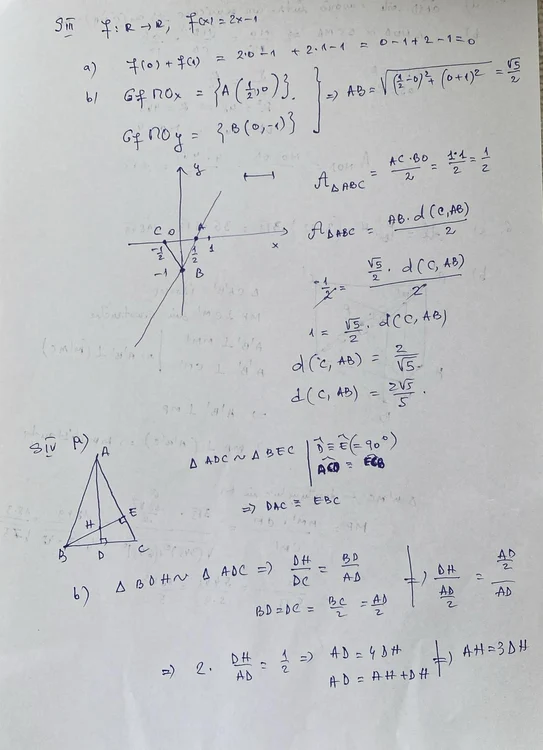 SIII f: R → R, f(x) = 2x-1
a) f(0) + f(1) = 2·0-1 + 2·1-1 = 0-1+2-1=0
b) Gf ∩ Ox = {A(1/2, 0)}.
Gf ∩ Oy = {B(0,-1)}
⇒ AB = √((1/2-0)² + (0+1)²) = √5/2
y
C O A
-1/2 1/2 1 x
-1 B
A△ABC = AC·BO/2 = 1·1/2 = 1/2
A△ABC = AB·d(C,AB)/2
1/2 = √5/2 · d(C,AB)/2
1 = √5/2 · d(C,AB)
d(C,AB) = 2/√5
d(C,AB) = 2√5/5.
SIV a)
A
H E
B D C
△ADC ~ △BEC | D̂ ≡ Ê (=90°)
ACD ≡ ECB
⇒ DAC ≡ EBC
b) △BDH ~ △ADC ⇒ DH/DC = BD/AD
BD=DC = BC/2 = AD/2
⇒ DH/(AD/2) = (AD/2)/AD
⇒ 2 · DH/AD = 1/2 ⇒ AD = 4DH
AD = AH+DH
⇒ AH=3DH